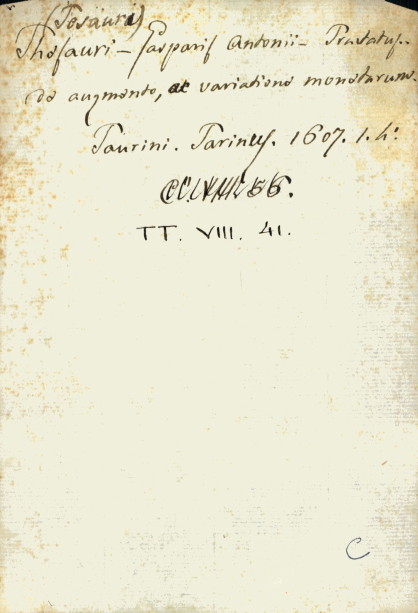 (Tesauri)
Thesauri - Gasparis Antonii - Tractatus..
de augmento, ac variatione monetarum.
Taurini. Tarinus. 1607. 1. 4:
56.
TT. VIII. 41.
C